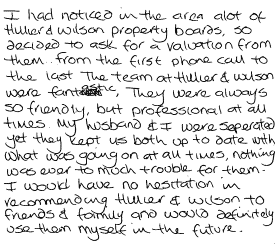 I had noticed in the area alot of
Hiller & Wilson property boards, so
decided to ask for a valuation from
them. from the first phone call to
the last The team at Hiller & Wilson
were fantastic, They were always
so friendly, but professional at all
times. My husband & I were seperated
yet they kept us both up to date with
what was going on at all times, nothing
was ever to much trouble for them.
I would have no hesitation in
recommending Hiller & Wilson to
friends & family and would definitely
use them myself in the future.